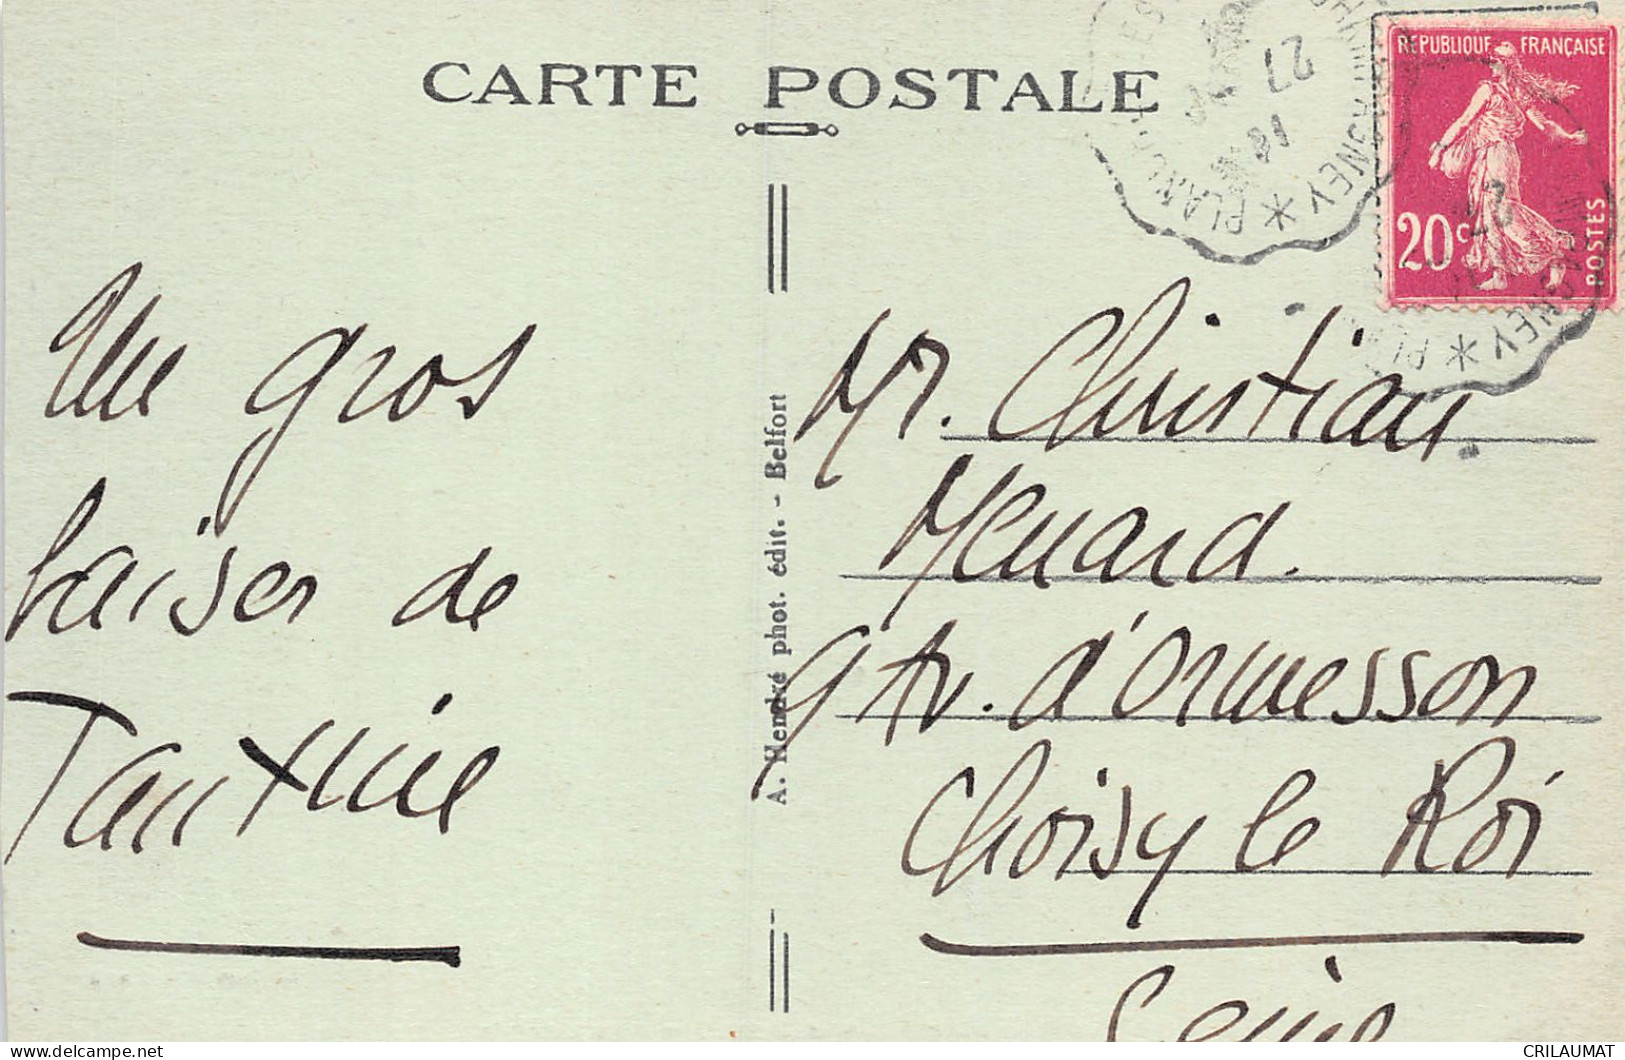 CARTE POSTALE
REPUBLIQUE FRANÇAISE
20c
POSTES
27
PLANCH
NEY
Un gros
baiser de
Tantine
A. Hendré phot. édit. - Belfort
Mr. Christian
Menard.
9 Av. d'Ormesson
Choisy le Roi
Seine
CRILAUMAT